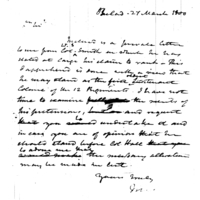 Philad- 27 March 1800
Sir
Inclosed is a private letter
to me from Col. Smith in which he has
stated at large his claim to rank - This
I apprehend is done with a view that
he may claim the first Lieutenant
Colonel of the 12 Regiments. I have not
time to examine the merits of
his pretensions, and request
that you undertake it and
in case you are of opinion that he
should stand before Col Hall
the necessary alteration
may be made in list
Yours truly